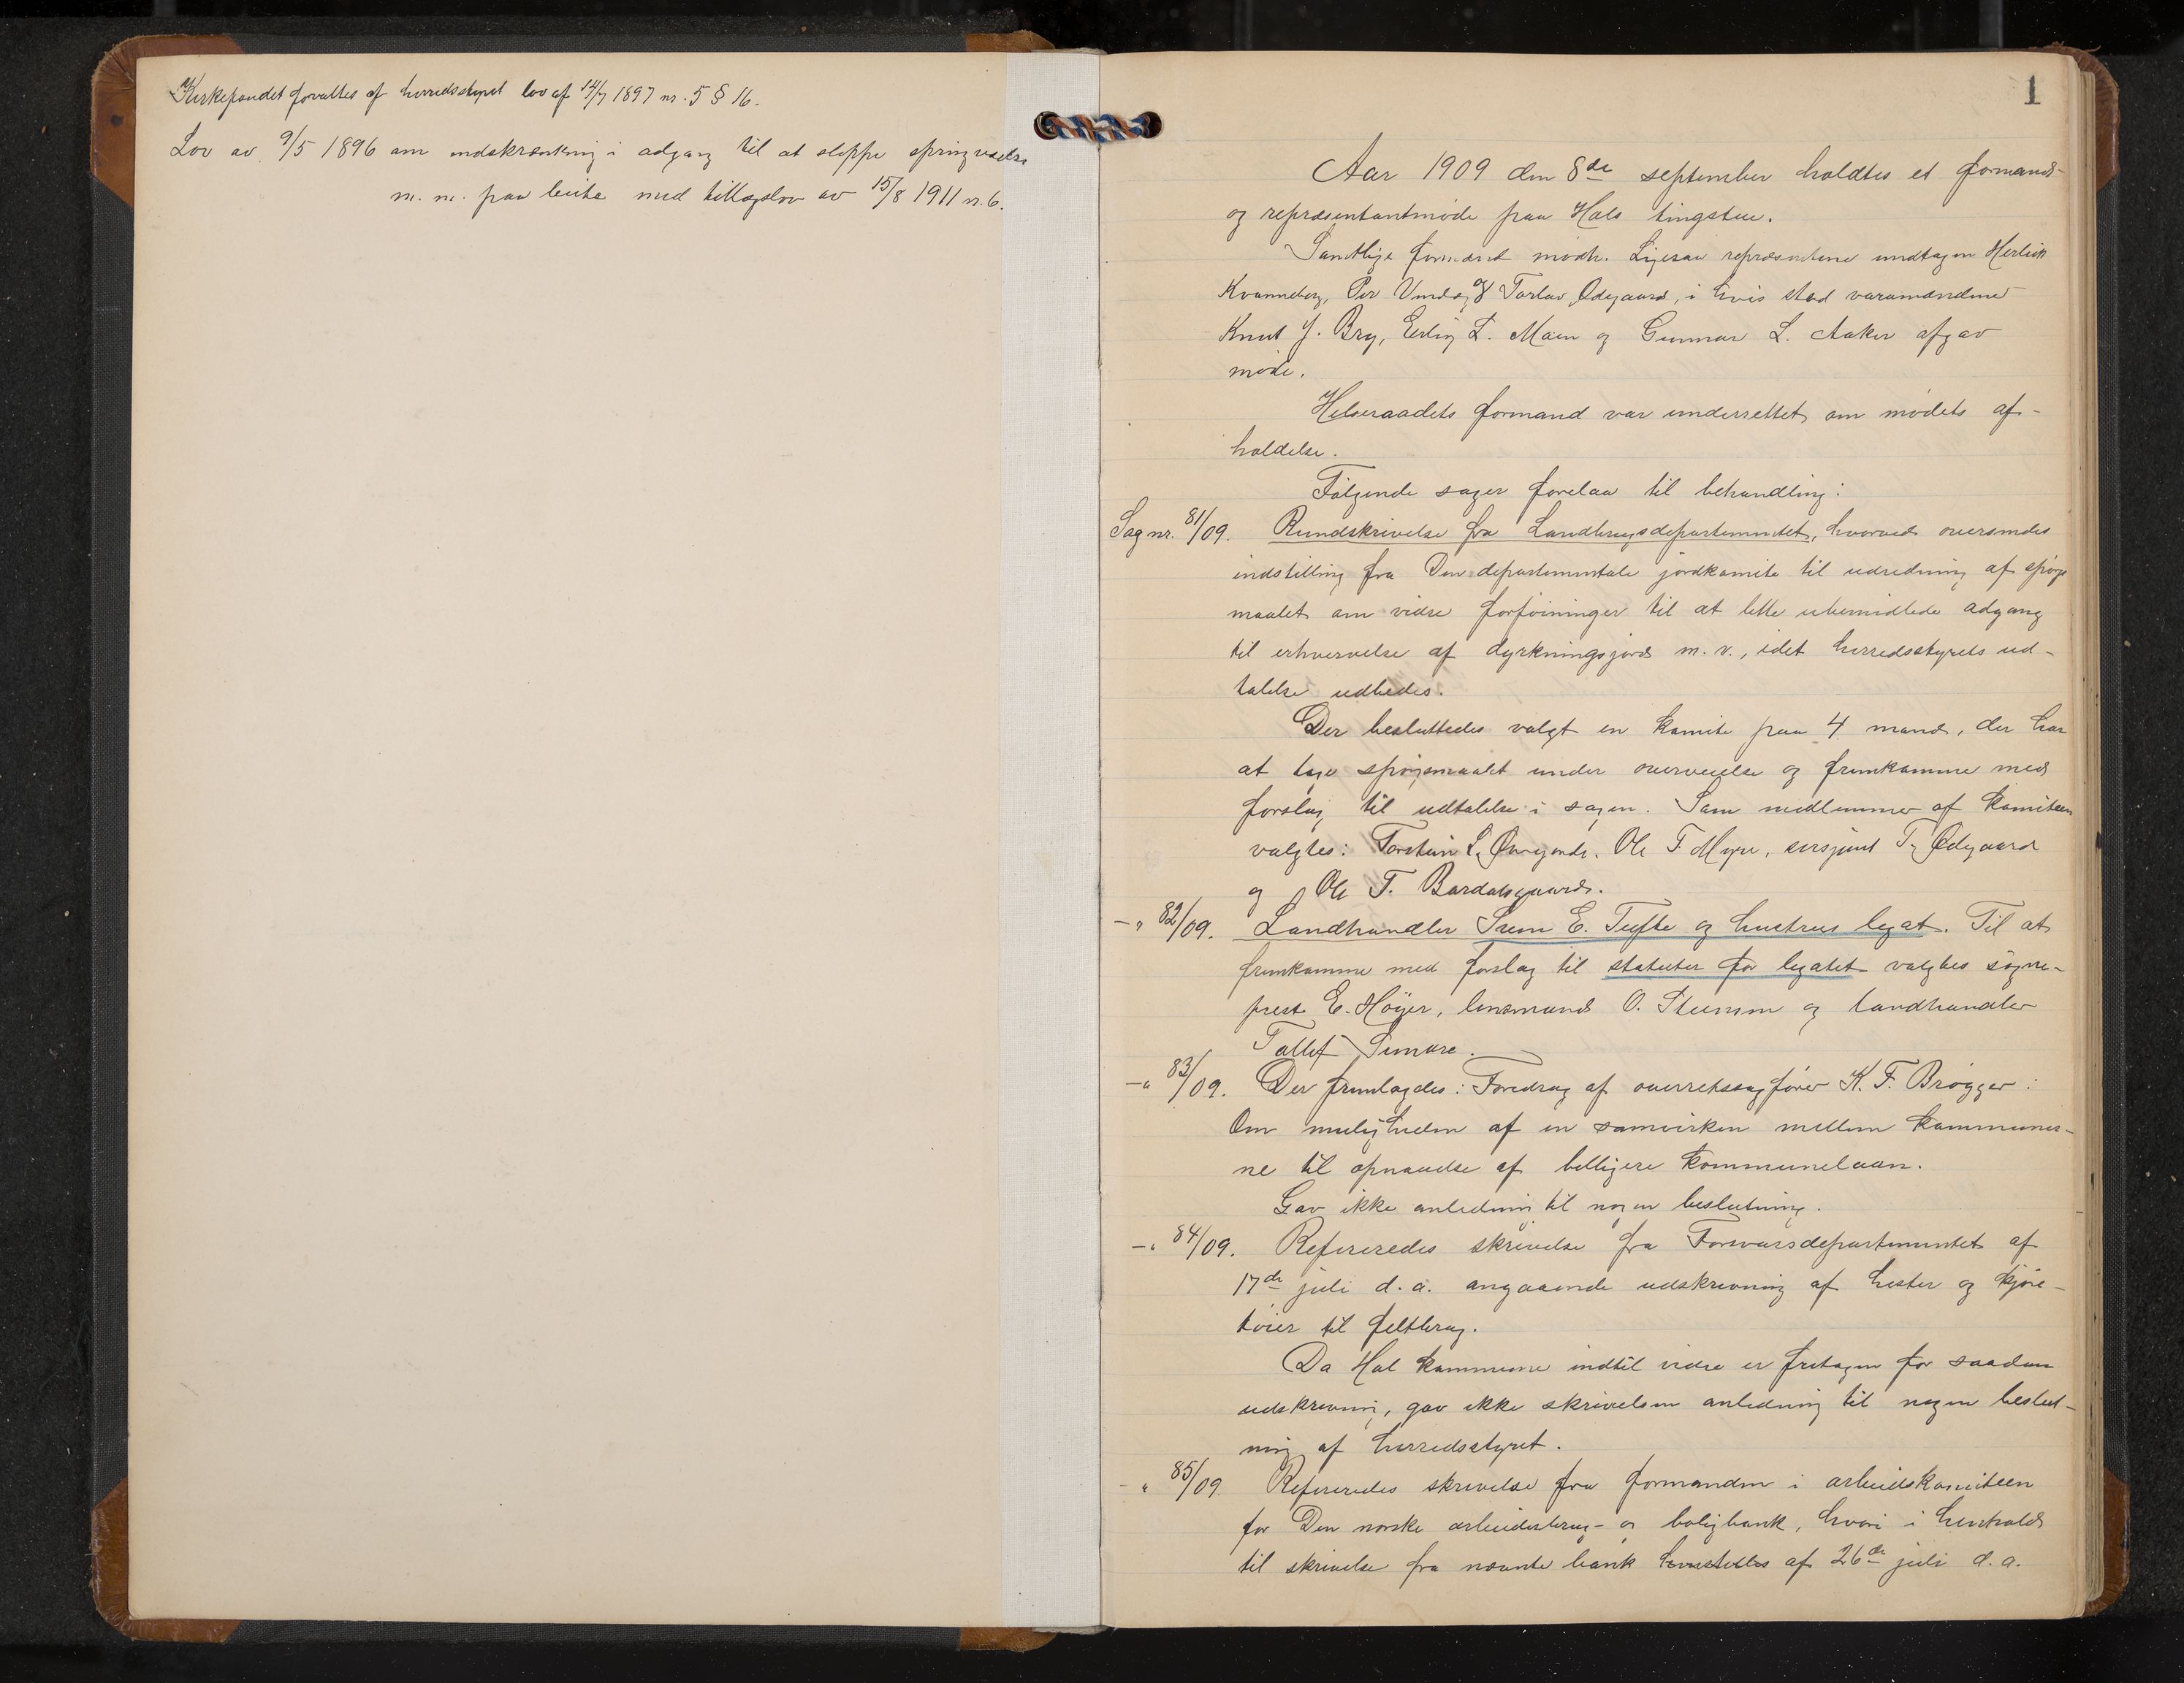 Kirkefondet forvaltes af herredsstyret lov af 14/7 1897 nr. 5 § 16.
Lov av 9/5 1896 om indskrænkning i adgang til at sleppe
m. m. paa beite med tillægslov av 15/8 1911 nr. 6.
1
Aar 1909 den 8de september holdtes et formands-
og repræsentantmøde paa Hols tingstue.
Samtlige formænd mødte. Ligesaa repræsentanterne undtagen
Kvanneberg, Per og Torlav Ødegaard, i hvis sted varamændene
Knut J. Bry, Erling L. Moen og Gunnar L. Aaker afgav
møde.
Helseraadets formand var underrettet om mødets af-
holdelse.
Følgende sager forelaa til behandling:
Sag nr. 81/09. Rundskrivelse fra Landbrugsdepartementet, hvorved oversendes
indstilling fra Den departementale jordkomite til udredning af spørgs
maalet om vidre forføininger til at lette ubemidlede adgang
til erhvervelse af dyrkningsjord m. v., idet herredsstyrets ud-
talelse udbedes.
Der besluttedes valgt en komite paa 4 mand, der har
at tage spørgsmaalet under overveielse og fremkomme med
forslag til udtalelse i sagen. Som medlemmer af komiteen
valgtes: Torstein L. Øvregarde, Ole T. Myre, sersjant T. Ødegaard
og Ole T. Bardalsgaard.
-„ 82/09. Landhandler Svein E. Tufte og hustrus legat. Til at
fremkomme med forslag til statuter for legatet valgtes sogne-
prest E. Høyer, lensmand O. Steensen og landhandler
Tollef Simare.
-„ 83/09. Der fremlagdes: Foredrag af overretssagfører K. F. Brøgger:
Om muligheden af en samvirken mellem kommuner-
ne til opnaaelse af billigere kommunelaan.
Gav ikke anledning til nogen beslutning.
-„ 84/09. Refereredes skrivelse fra Forsvarsdepartementet af
17de juli d. a. angaaende udskrivning af hester og kjøre-
tøier til feltbrug.
Da Hol kommune indtil vidre er fritagen for saadan
udskrivning, gav ikke skrivelsen anledning til nogen beslut-
ning af herredsstyret.
-„ 85/09. Refereredes skrivelse fra formanden i arbeidskomiteen
for Den norske arbeiderbrug- og boligbank, hvori i henhold
til skrivelse fra nævnte bank af 26de juli d. a.